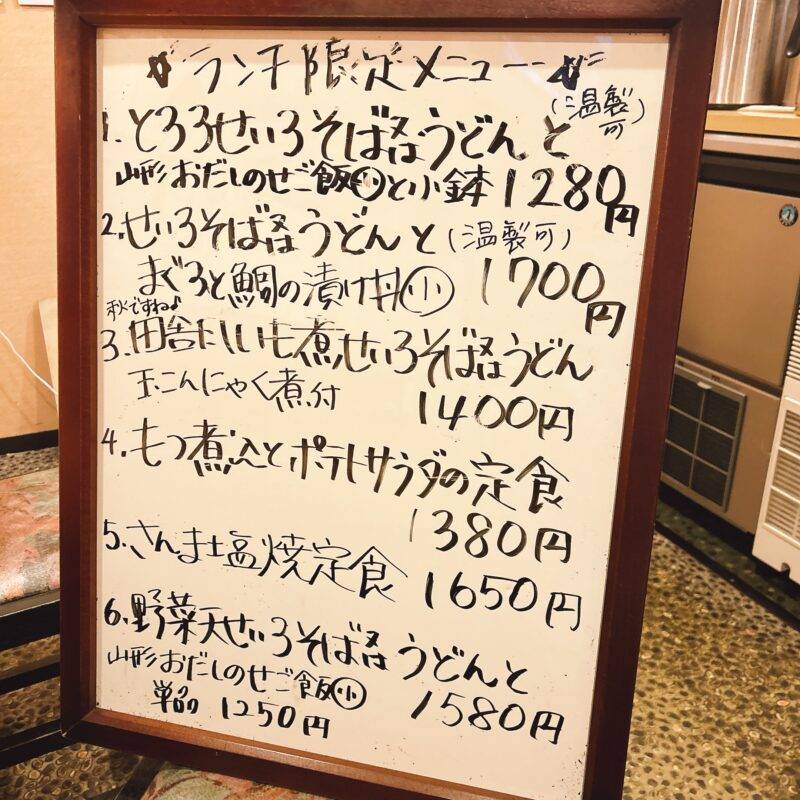 ランチ限定メニュー
(温製可)
1.とろろせいろそば又はうどんと
山形おだしのせご飯小と小鉢1280円
2.せいろそば又はうどんと(温製可)
まぐろと鯛の漬け丼小 1700円
秋ですね♪
3.田舎にしいも煮せいろそば又はうどん
玉こんにゃく煮付 1400円
4.もつ煮込とポテトサラダの定食
1380円
5.さんま塩焼定食 1650円
6.野菜天せいろそば又はうどんと
山形おだしのせご飯小 1580円
単品 1250円